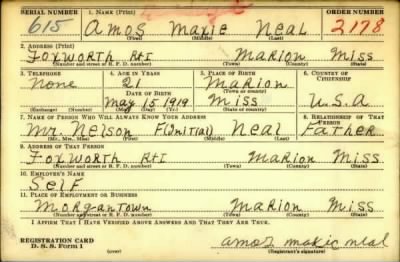 SERIAL NUMBER 1. NAME (Print) ORDER NUMBER
615 Amos Maxie Neal 2178
(First) (Middle) (Last)
2. ADDRESS (Print)
Foxworth Rt1 Marion Miss
(Number and street or R. F. D. number) (Town) (County) (State)
3. TELEPHONE 4. AGE IN YEARS 5. PLACE OF BIRTH 6. COUNTRY OF CITIZENSHIP
None 21 Marion
DATE OF BIRTH (Town or county)
May 15 1919 Miss U.S.A
(Exchange) (Number) (Mo.) (Day) (Yr.) (State or country)
7. NAME OF PERSON WHO WILL ALWAYS KNOW YOUR ADDRESS 8. RELATIONSHIP OF THAT PERSON
Mr. Nelson F(Initial) Neal Father
(Mr., Mrs., Miss) (First) (Middle) (Last)
9. ADDRESS OF THAT PERSON
Foxworth Rt1 Marion Miss
(Number and street or R. F. D. number) (Town) (County) (State)
10. EMPLOYER'S NAME
Self
11. PLACE OF EMPLOYMENT OR BUSINESS
Morgantown Marion Miss
(Number and street or R. F. D. number) (Town) (County) (State)
I AFFIRM THAT I HAVE VERIFIED ABOVE ANSWERS AND THAT THEY ARE TRUE.
REGISTRATION CARD
D. S. S. Form 1 (over) amos maxie neal
(Registrant's signature)